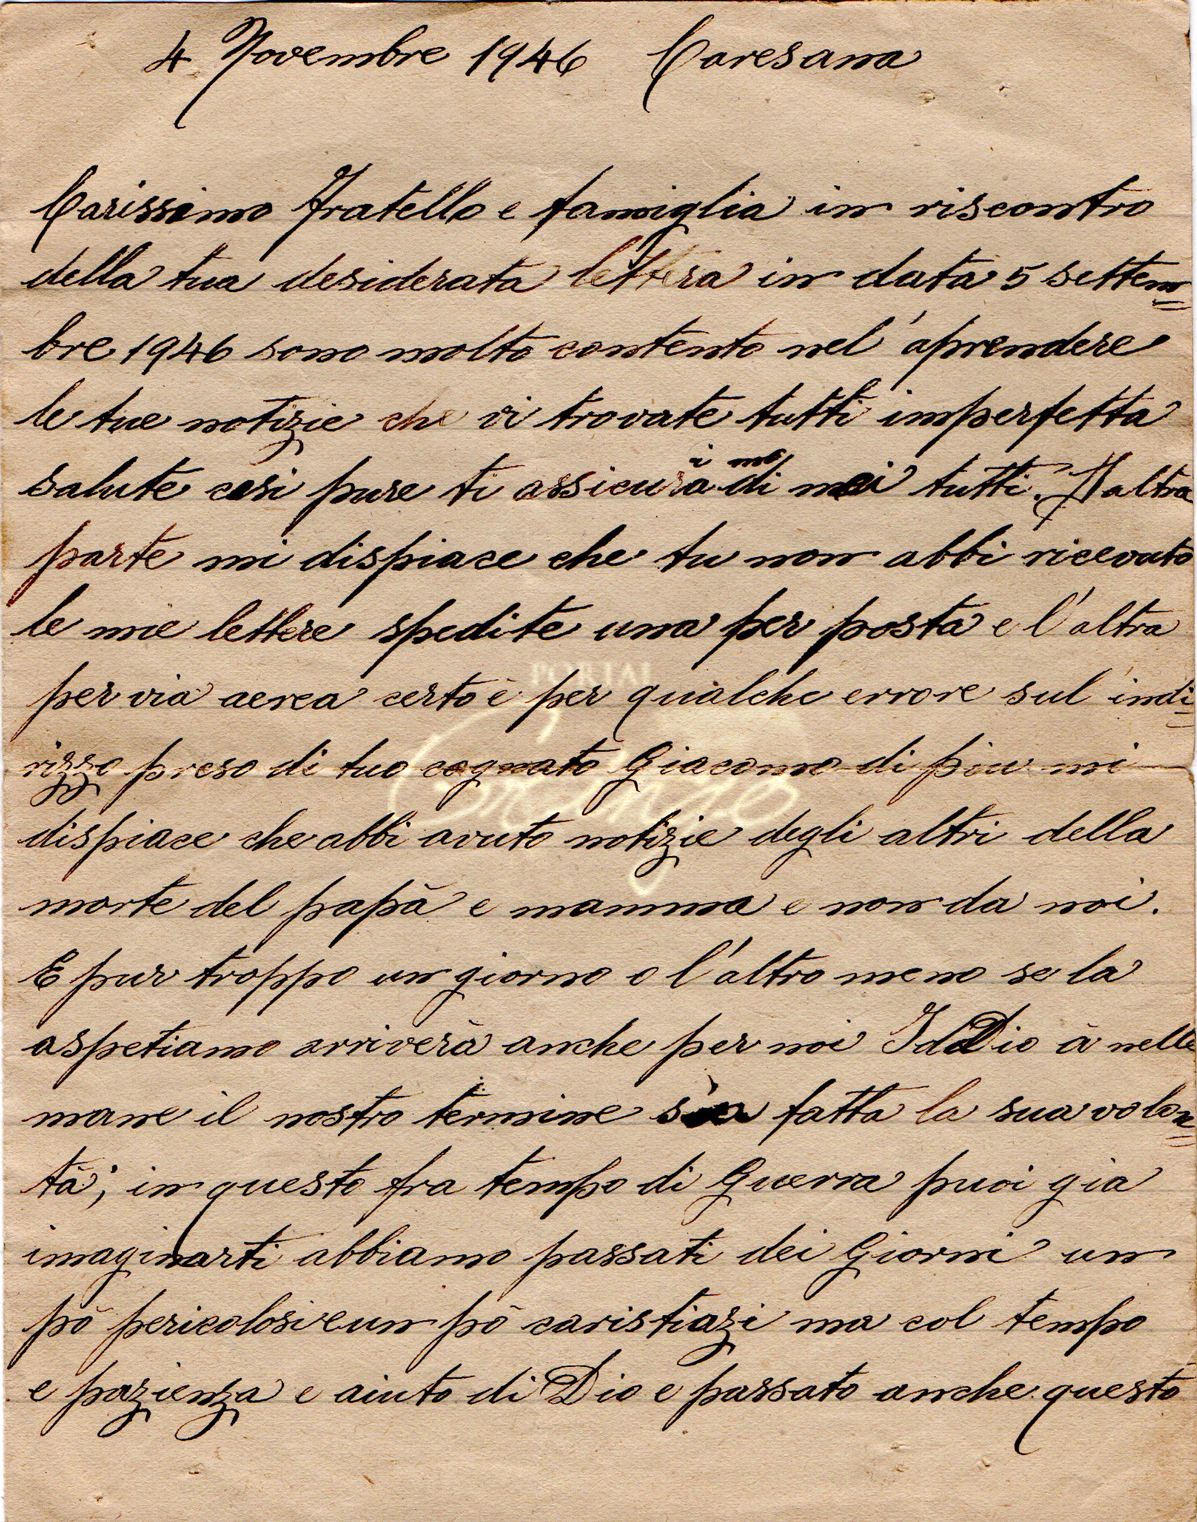 4 Novembre 1946 Caresana
Carissimo Fratello e famiglia in riscontro
della tua desiderata lettera in data 5 settem=
bre 1946 sono molto contento nel' aprendere
le tue notizie che vi trovate tutti imperfetta
salute cosi pure ti assicuriamo di noi tutti. D'altra
parte mi dispiace che tu non abbi ricevuto
le mie lettere spedite una per posta e l'altra
per via aerea certo è per qualche errore sul indi=
rizzo preso di tuo cognato Giacomo di piu mi
dispiace che abbi avuto notizie degli altri della
morte del papà e mamma e non da noi.
E pur troppo un giorno o l'altro meno se la
aspetiamo arriverà anche per noi IdDio à nelle
mane il nostro termine sia fatta la sua volon=
tà; in questo fra tempo di Guerra puoi gia
imaginarti abbiamo passati dei Giorni un
pò pericolosi e un pò caristiazi ma col tempo
e pazienza e aiuto di Dio e passato anche questo
PORTAL